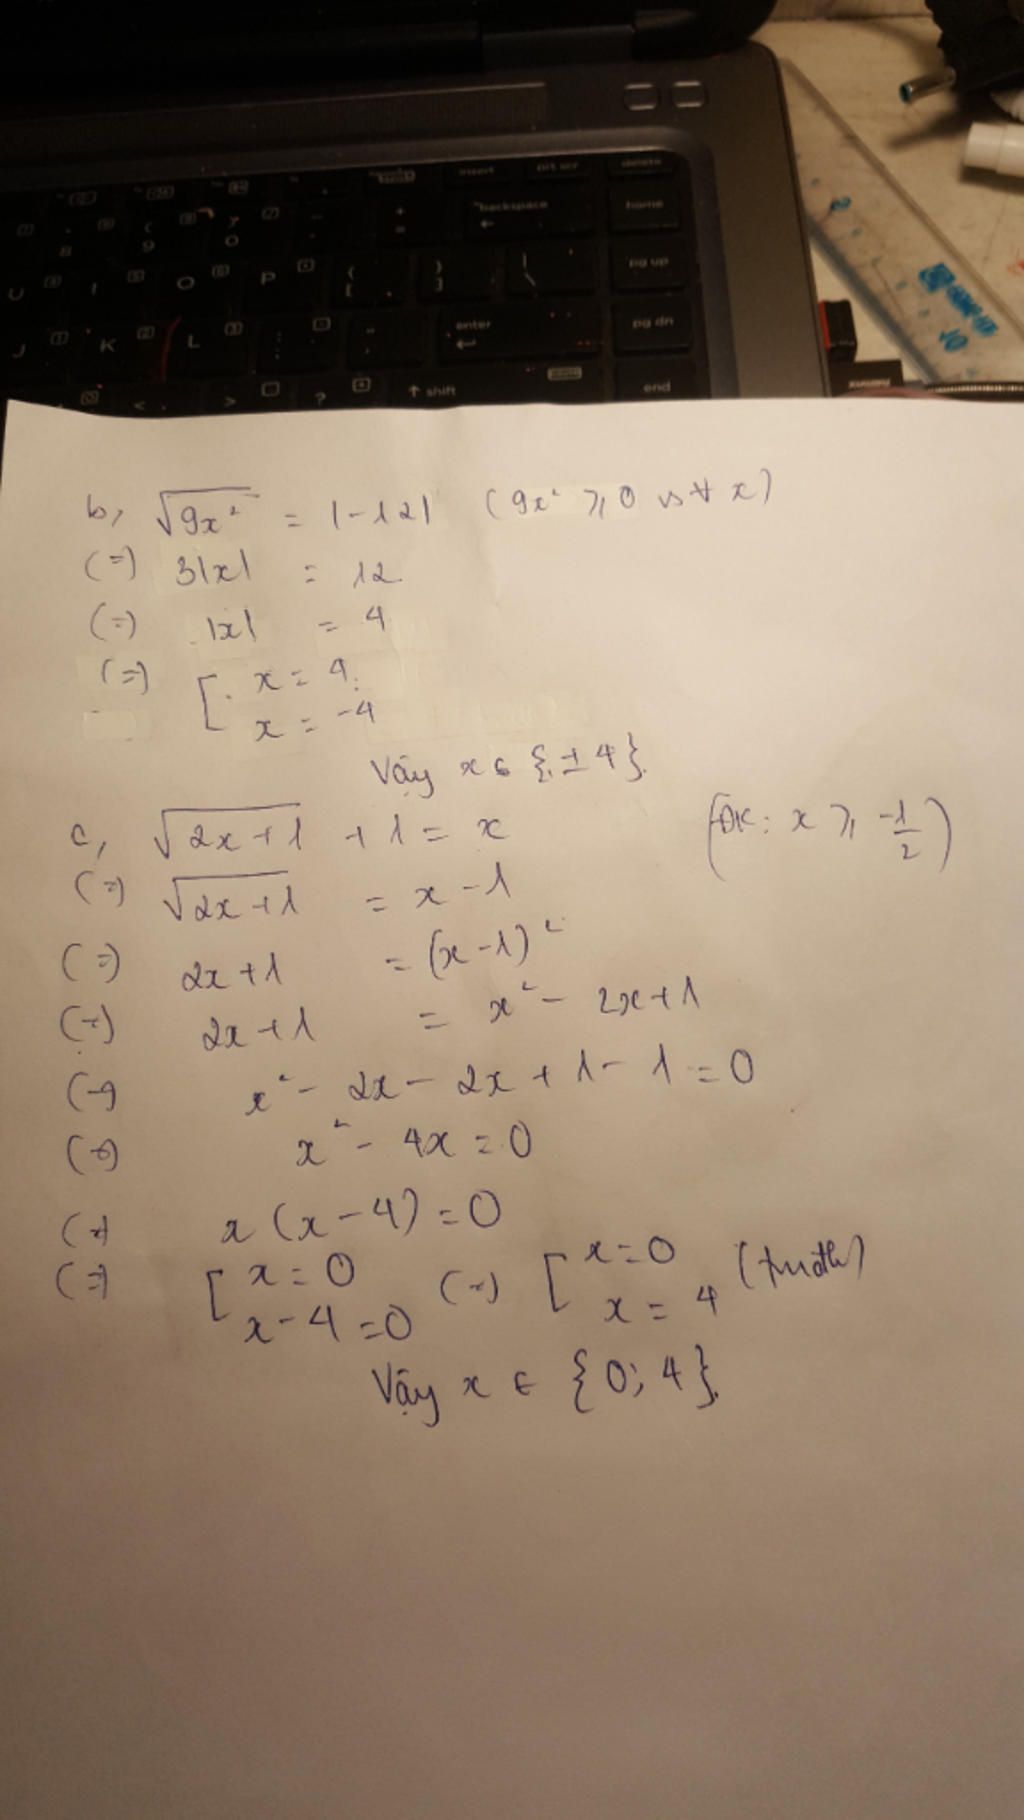 insert prt scr delete
backspace home
9 0 - + =
U I O P { [ } ] | \ pg up
J K L : ; " enter pg dn
< > ? shift end
2
10
b, √9x² = |-12| (9x² ⩾ 0 vs ∀ x)
(=) 3|x| = 12.
(=) |x| = 4
(=) [ x = 4.
x = -4
Vậy x ∈ {± 4}.
c, √2x+1 + 1 = x (ĐK: x ⩾ -1/2)
(=) √2x+1 = x - 1
(=) 2x+1 = (x-1)²
(=) 2x+1 = x² - 2x+1
(=) x² - 2x - 2x + 1 - 1 = 0
(=) x² - 4x = 0
(=) x (x-4) = 0
(=) [ x = 0 (=) [ x = 0 (tmđk)
x - 4 = 0 x = 4
Vậy x ∈ {0; 4}.